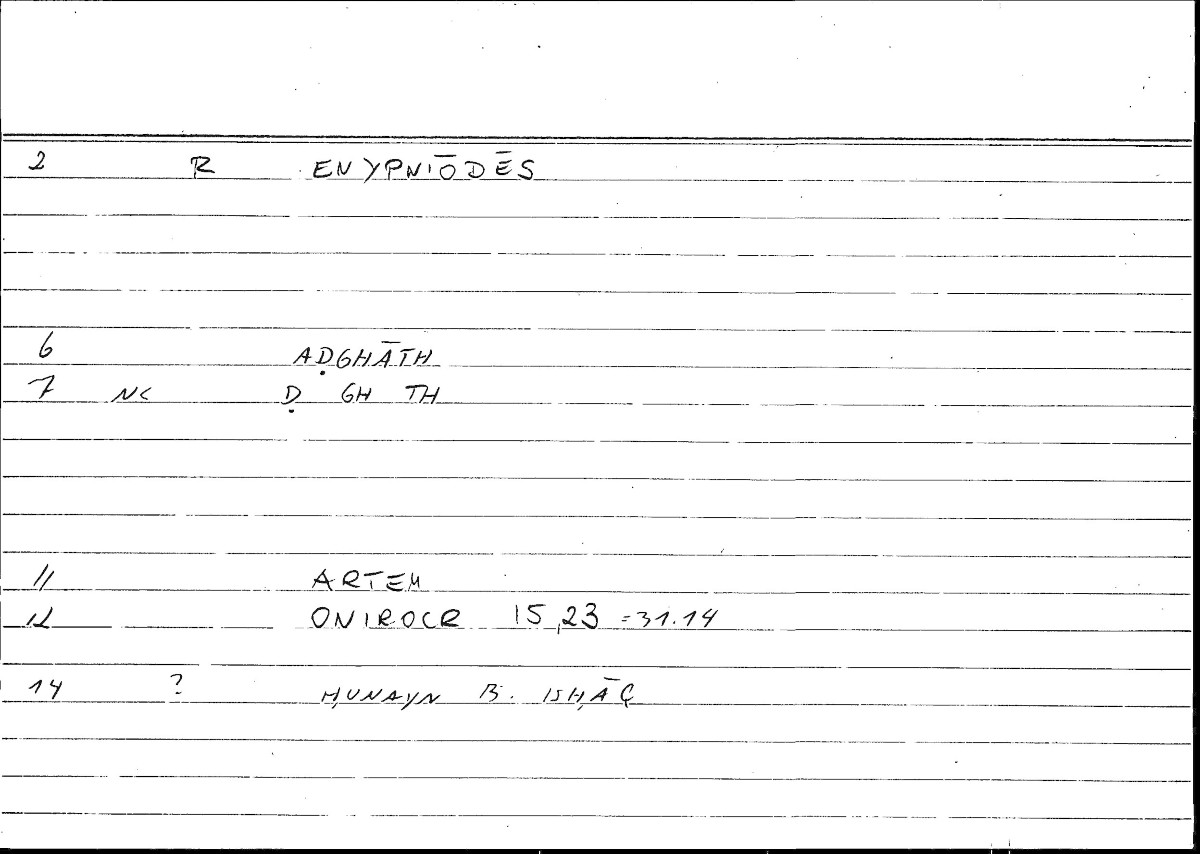 2 R ENYPNIŌDĒS
6 AḌGHĀTH
7 NC Ḍ GH TH
11 ARTEM
12 ONIROCR 15,23 = 31.14
14 ? ḤUNAYN B. ISḤĀÇ